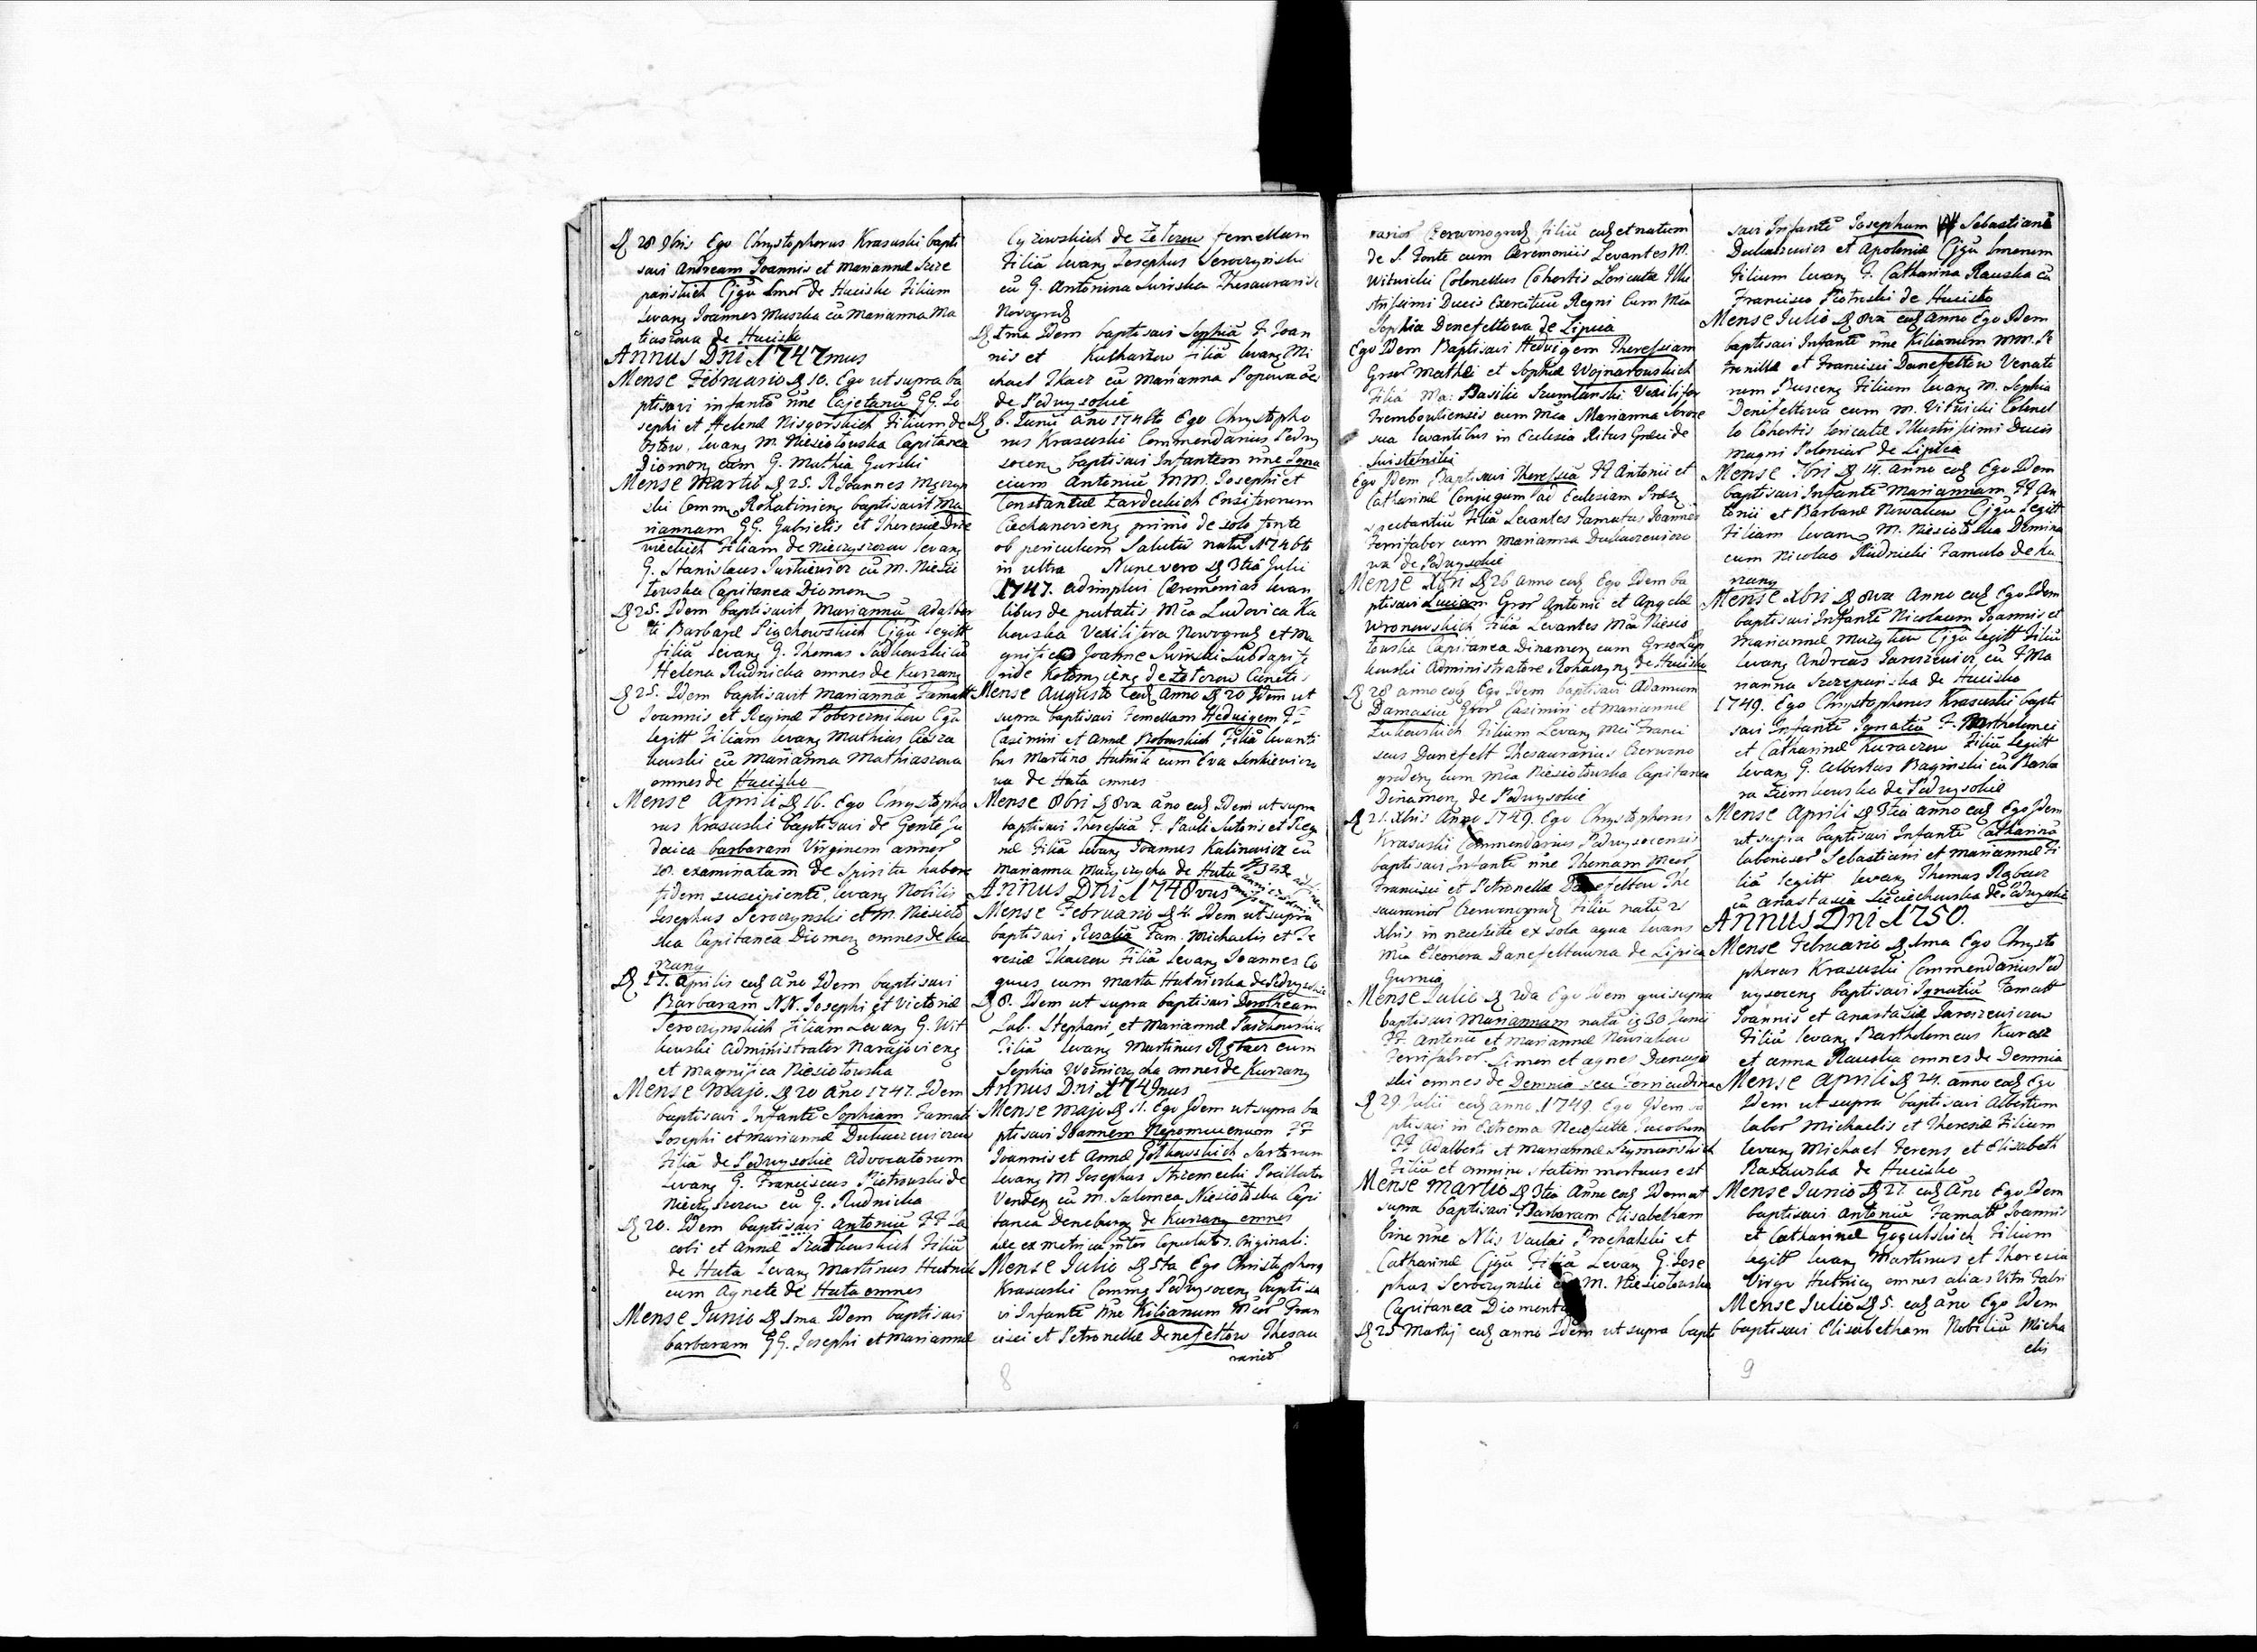 28 9bris Ego Chrystophorus Krasuski bapti
savi Andream Joannis et Mariannæ Szcze
panskich Cjgu de Huciska Filium
Levang Joannes Muszka cu Marianna Ma
tiaszowa de Hucisko
Annus Dni 1747mus
Mense Februario 10. Ego ut supra ba
ptisavi infante nne Cajetanu GG. Jo
sephi et Helenæ Filium de
levang M. Niesiołouska Capitanea
Diomen cum G. Mathia Gurski
Mense Martii 25. R Joannes
ski Comm Rohatinieng baptisavit Ma
riannam GG. Gabrielis et Theresiæ Drze
wieckich Filiam de Nieczyszczow levang
G. Stanislaus Jurkiewicz cu M. Niesio
łouska Capitanea Diomen
25. Idem baptisavit Mariannā Adalber
ti Barbaræ Cjgu legitt
filiā levang G. Thomas Sadkowski cu
Helena Rudnicka omnes de Kurzany
25. Idem baptisavit Marianna Famatt
Joannis et Reginæ Poberezników Cgu
legitt Filiam levang Mathias
kouski cu Marianna Mathiaszowa
omnes de Hucisko
Mense Aprili 16. Ego Chrystopho
rus Krasuski baptisavi de Gente Ju
daica barbaram Virginem annor
18. examinatam de Spiritu habere
fidem suscipiente, levang Nobilis
Josephus Seroczynski et M. Niesioło
ska Capitanea Diomen omnes de Ku
rzany
17. Aprilis eod Ano Idem baptisavi
Barbaram NN. Josephi et Victoriæ
Seroczynskich filiam Levang G. Wit
kouski Administrator Narajovieng
et Magnifica Niesiołouska
Mense Majo. 20 Ano 1747. Idem
baptisavi Infante Sophiam Famatt
Josephi et Mariannæ Dukaczewiczow
Filiā de Podwysokie Advocatorum
Levang G. Franciscus Piotrouski de
Nieczyszczow cu G. Rudnicka
20. Idem baptisavi Antoniū FF Ja
cobi et Annæ Filiū
de Huta Levang Martinus Hutnik
cum Agnete de Huta omnes
Mense Junio 1ma Idem baptisavi
barbaram GG. Josephi et Mariannæ
de Zołczow femellam
Filiā levang Josephus Seroczynski
cu G. Antonina Swirska Thesaurarisse
Novogrod
1ma Idem baptisavi Sophiā F Joan
nis et Kucharzow Filiā levang Mi
chael Tkacz cu Marianna Popowa oēs
de Podwysokie
6. Junii ano 1746to Ego Chrystopho
rus Krasuski Commendarius Podwy
soceng baptisavi Infantem nne Igna
cium Antoniū MM. Josephi et
Constantiæ Zardeckich Ensiferorum
Ciechanovieng primo de solo fonte
ob periculum Salutis natū 1746to
in ultra Nunc vero 3tia Julii
1747. adimplevi Ceremonias levan
tibus de putatis Mca Ludovica Ka
kouska Vexilifera Nowogrod et Ma
gnifico Joanne Swirski Subdapife
ride Kołomyieng de Zołczow Cunctis
Mense Augusto eod anno 20 Idem ut
supra baptisavi Femellam Hedvigem FF
Casimiri et Annæ Filiā levanti
bus Martino Hutnik cum Eva Senkiewiczo
wa de Huta omnes
Mense 8bri 8va ano eod Idem ut supra
baptisavi Theressiā F. Pauli Sutoris et Reg
næ Filiā levang Joannes Kalinowicz cu
Marianna de Huta
Annus Dni 1748vus
Mense Februario 4. Idem ut supra
baptisavi Rosaliā Fam. Michaelis et Te
resiæ Tkaczow Filiā levang Joannes Co
quus cum Marta Hutnicska de Podwysokie
8. Idem ut supra baptisavi Dorotheam
Lab. Stephani et Mariannæ
Filiā levang Martinus cum
Sophia omnes de Kurzany
Annus Dni 1749nus
Mense Majo 11. Ego Idem ut supra ba
ptisavi Joannem Nepomucenum FF
Joannis et Annæ Gołkowskich Sartorum
levang M Josephus Pocillator
Venden cu M. Salomea Niesiołoska Capi
tanea Deneburg de Kurzany omnes
hæc ex metrica inter Copulatos Originali:
Mense Julio 5ta Ego Christophorg
Krasuski Commg Podwysoceng baptisa
vi Infante nne Kilianum Mcor Fran
cisci et Petronellæ Denefeltow Thesau
rarior
8
rarior Czerwinogrod filiū eod et natum
de S. Fonte cum Ceremoniis Levantes M.
Witwicki Colonellus Cohortis Loricatæ Illu
strissimi Ducis Exercituu Regni Cum Mca
Sophia Denefeltowa de Lipica
Ego Idem Baptisavi Hedvigem Theressiam
Grsor Mathei et Sophiæ Wojnarouskich
Filiā Ma: Basilio Szumlanski Vexilifer
Trembouliensis cum Mca Marianna
ska levantibus in Ecclesia Ritus Græci de
Swistelniki
Ego Idem Baptisavi Theressiā FF Antonii et
Catharinæ Conjugum ad Ecclesiam
spectantiu Filiā Levantes Famatus Joannes
Ferrifaber cum Marianna Dukaczewiczo
wa de Podwysokie
Mense Xbri 26 anno eod Ego Idem ba
ptisavi Luciam Grsor Antonii et Angelæ
Wronowskich Filiā Levantes Mca Niesio
łouska Capitanea Dinamen cum Grso
kouski Administratore Rohaczyn de Hucisko
28 anno eod Ego Idem baptisavi Adamum
Damasiū Grsor Casimiri et Mariannæ
Żukowskich Filium Levang Mci Franci
scus Danefelt Thesaurarius Czerwono
grodeng cum Mca Niesiołouska Capitanea
Dinamen de Podwysokie
21. Xbris Anno 1749. Ego Chrystophorus
Krasuski Commendarius Podwysocensis
baptisavi Infante nne Thomam Mcor
Francisci et Petronellæ Danefeltow The
saurarior Czerwonogrod Filiū natū 21
Xbris in necessite ex sola aqua levans
Mca Eleonora Danefeltowna de Lipica
Gurnia
Mense Julio 2da Ego Idem qui supra
baptisavi Mariannam nata is 30 Junii
FF. Antonii et Mariannæ Nowiakow
Ferrifabror. Simon et Agnes
ski omnes de Demnia seu Ferricudina
29 Julii eod anno 1749 Ego Idem ba
ptisavi in Extrema Necessitte Jacobum
FF Adalberti et Mariannæ Szymanskich
Filiū et omnino statim mortuus est
Mense Martio 3tia Anno eod Idem ut
supra baptisavi Barbaram Elisabetham
bine nne Nlis Vaclai Prochalski et
Catharinæ Cjgu Filiā Levang G. Jose
phus Seroczynski cu M. Niesiołouska
Capitanea Diomenta
25 Martij eod anno Idem ut supra bapti
savi Infante Josephum Sebastiani
Dukaczewicz et Apoloniæ Cjgu
Filium levang F. Catharina Rauska cu
Francisco Piotroski de Hucisko
Mense Julio 8va eod Anno Ego Idem
baptisavi Infante nne Kilianum MM. Pe
tronillæ et Francisci Danefeltow Venato
rum Busceng Filium levang M. Sophia
Denefeltowa cum M. Vitwicki Colonel
lo Cohortis loricatæ Illustrissimi Ducis
magni Poloniar de Lipica
Mense 7bri 14. anno eod Ego Idem
baptisavi Infante Mariannam FF An
tonii et Barbaræ Nowakow Cjgu legitt
Filiam levang M. Niesiołoska Domina
cum Nicolao Rudnicki Famulo de Ku
rzany
Mense Xbri 8va Anno eod Ego Idem
baptisavi Infante Nicolaum Joannis et
Mariannæ Cjgu legitt Filiū
levang Andreas Jaroszewicz cu F Ma
rianna Szczepanska de Hucisko
1749. Ego Chrystophorus Krasuski bapti
savi Infante Ignatiū F. Bartholomei
et Catharinæ Kuraczow Filiū legitt
levang G. Albertus Baginski cu Barba
ra Ziembouska de Podwysokie
Mense Aprili 3tia anno eod Ego Idem
ut supra baptisavi Infante Catharinā
laboriosor Sebastiani et Mariannæ Fi
liā legitt levang Thomas
cu Anastasia de Podwysokie
Annus Dni 1750.
Mense Februario 1ma Ego Chrysto
phorus Krasuski Commendarius Pod
wysoceng baptisavi Ignatiū Famatt
Joannis et Anastasiæ Jaroszewiczow
Filiū levang Bartholomeus Kuracz
et Anna Rauska omnes de Demnia
Mense Aprili 24. anno eod Ego
Idem ut supra baptisavi Albertum
labor Michaelis et Theresiæ Filium
levang Michael Ferens et Elisabeth
de Hucisko
Mense Junio 27. eod Ano Ego Idem
baptisavi Antoniū Famatt Joannis
et Catharinæ Gogulskich Filium
legitt levang Martinus et Theresia
Virgo Hutnicy omnes alias Vitri Fabri
Mense Julio 5. eod ano Ego Idem
baptisavi Elisabetham Nobiliū Micha
elis
9